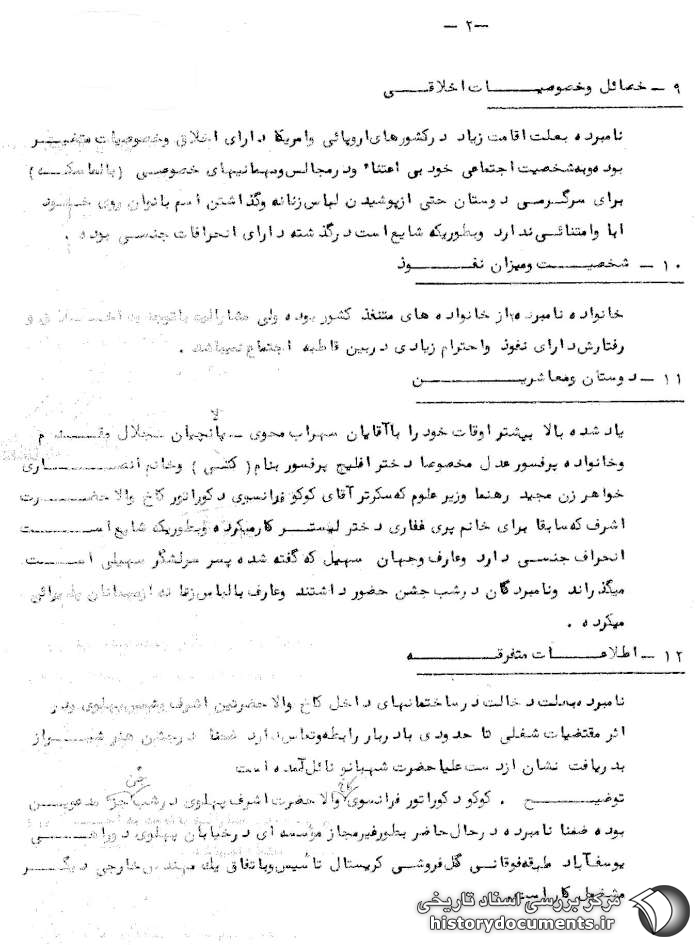 -۲-
۹ - خصائل وخصوصیات اخلاقی
نامبرده بعلت اقامت زیاد درکشورهای اروپائی وامریکا دارای اخلاق وخصوصیات متغیر
بوده وبه شخصیت اجتماعی خود بی اعتناء ودرمجالس ومهمانیهای خصوصی (بالماسکه)
برای سرگرمی دوستان حتی ازپوشیدن لباس زنانه وگذاشتن اسم بانوان روی خود
ابا وامتنائی ندارد وبطوریکه شایع است درگذشته دارای انحرافات جنسی بوده .
۱۰ - شخصیت ومیزان نفوذ
خانواده نامبرده از خانواده های متنفذ کشور بوده ولی مشارالیه باتوجه به اخلاق و
رفتارش دارای نفوذ واحترام زیادی دربین قاطبه اجتماع نمیباشد .
۱۱ - دوستان ومعاشرین
یاد شده بالا بیشتر اوقات خود را باآقایان سهراب محوی - پانچیان جلال مقدم
وخانواده پرفسور عدل مخصوصا دختر افلیج پرفسور بنام (کتی) وخانم انصاری
خواهر زن مجید رهنما وزیر علوم که سکرتر آقای کوکو فرانسوی دکوراتور کاخ والا حضرت
اشرف که سابقا برای خانم پری غفاری دختر لیستر کارمیکرده وبطوریکه شایع است
انحراف جنسی دارد وعارف وجهان سهیل که گفته شده پسر سرلشگر سهیلی است
میگذراند ونامبردگان درشب جشن حضور داشتند وعارف بالباس زنانه ازمیهمانان پذیرائی
میکرده .
۱۲ - اطلاعات متفرقه
نامبرده بعلت دخالت درساختمانهای داخل کاخ والاحضرتین اشرف وشمس پهلوی ودر
اثر مقتضیات شغلی تا حدودی بادربار رابطه وتماس دارد ضمنا درجشن هنر شیراز
بدریافت نشان ازدست علیاحضرت شهبانو نائل آمده است
توضیح . کوکو دکوراتور فرانسوی کاخ والا حضرت اشرف پهلوی درشب جشن جزء مدعوین
بوده ضمنا نامبرده درحال حاضر بطورغیرمجاز مؤسسه ای درخیابان پهلوی دوراهی
یوسف آباد طبقه فوقانی گل فروشی کریستال تأسیس وباتفاق یك مهندس خارجی دیگر
مشغول کار است
مرکز بررسی اسناد تاریخی
historydocuments.ir